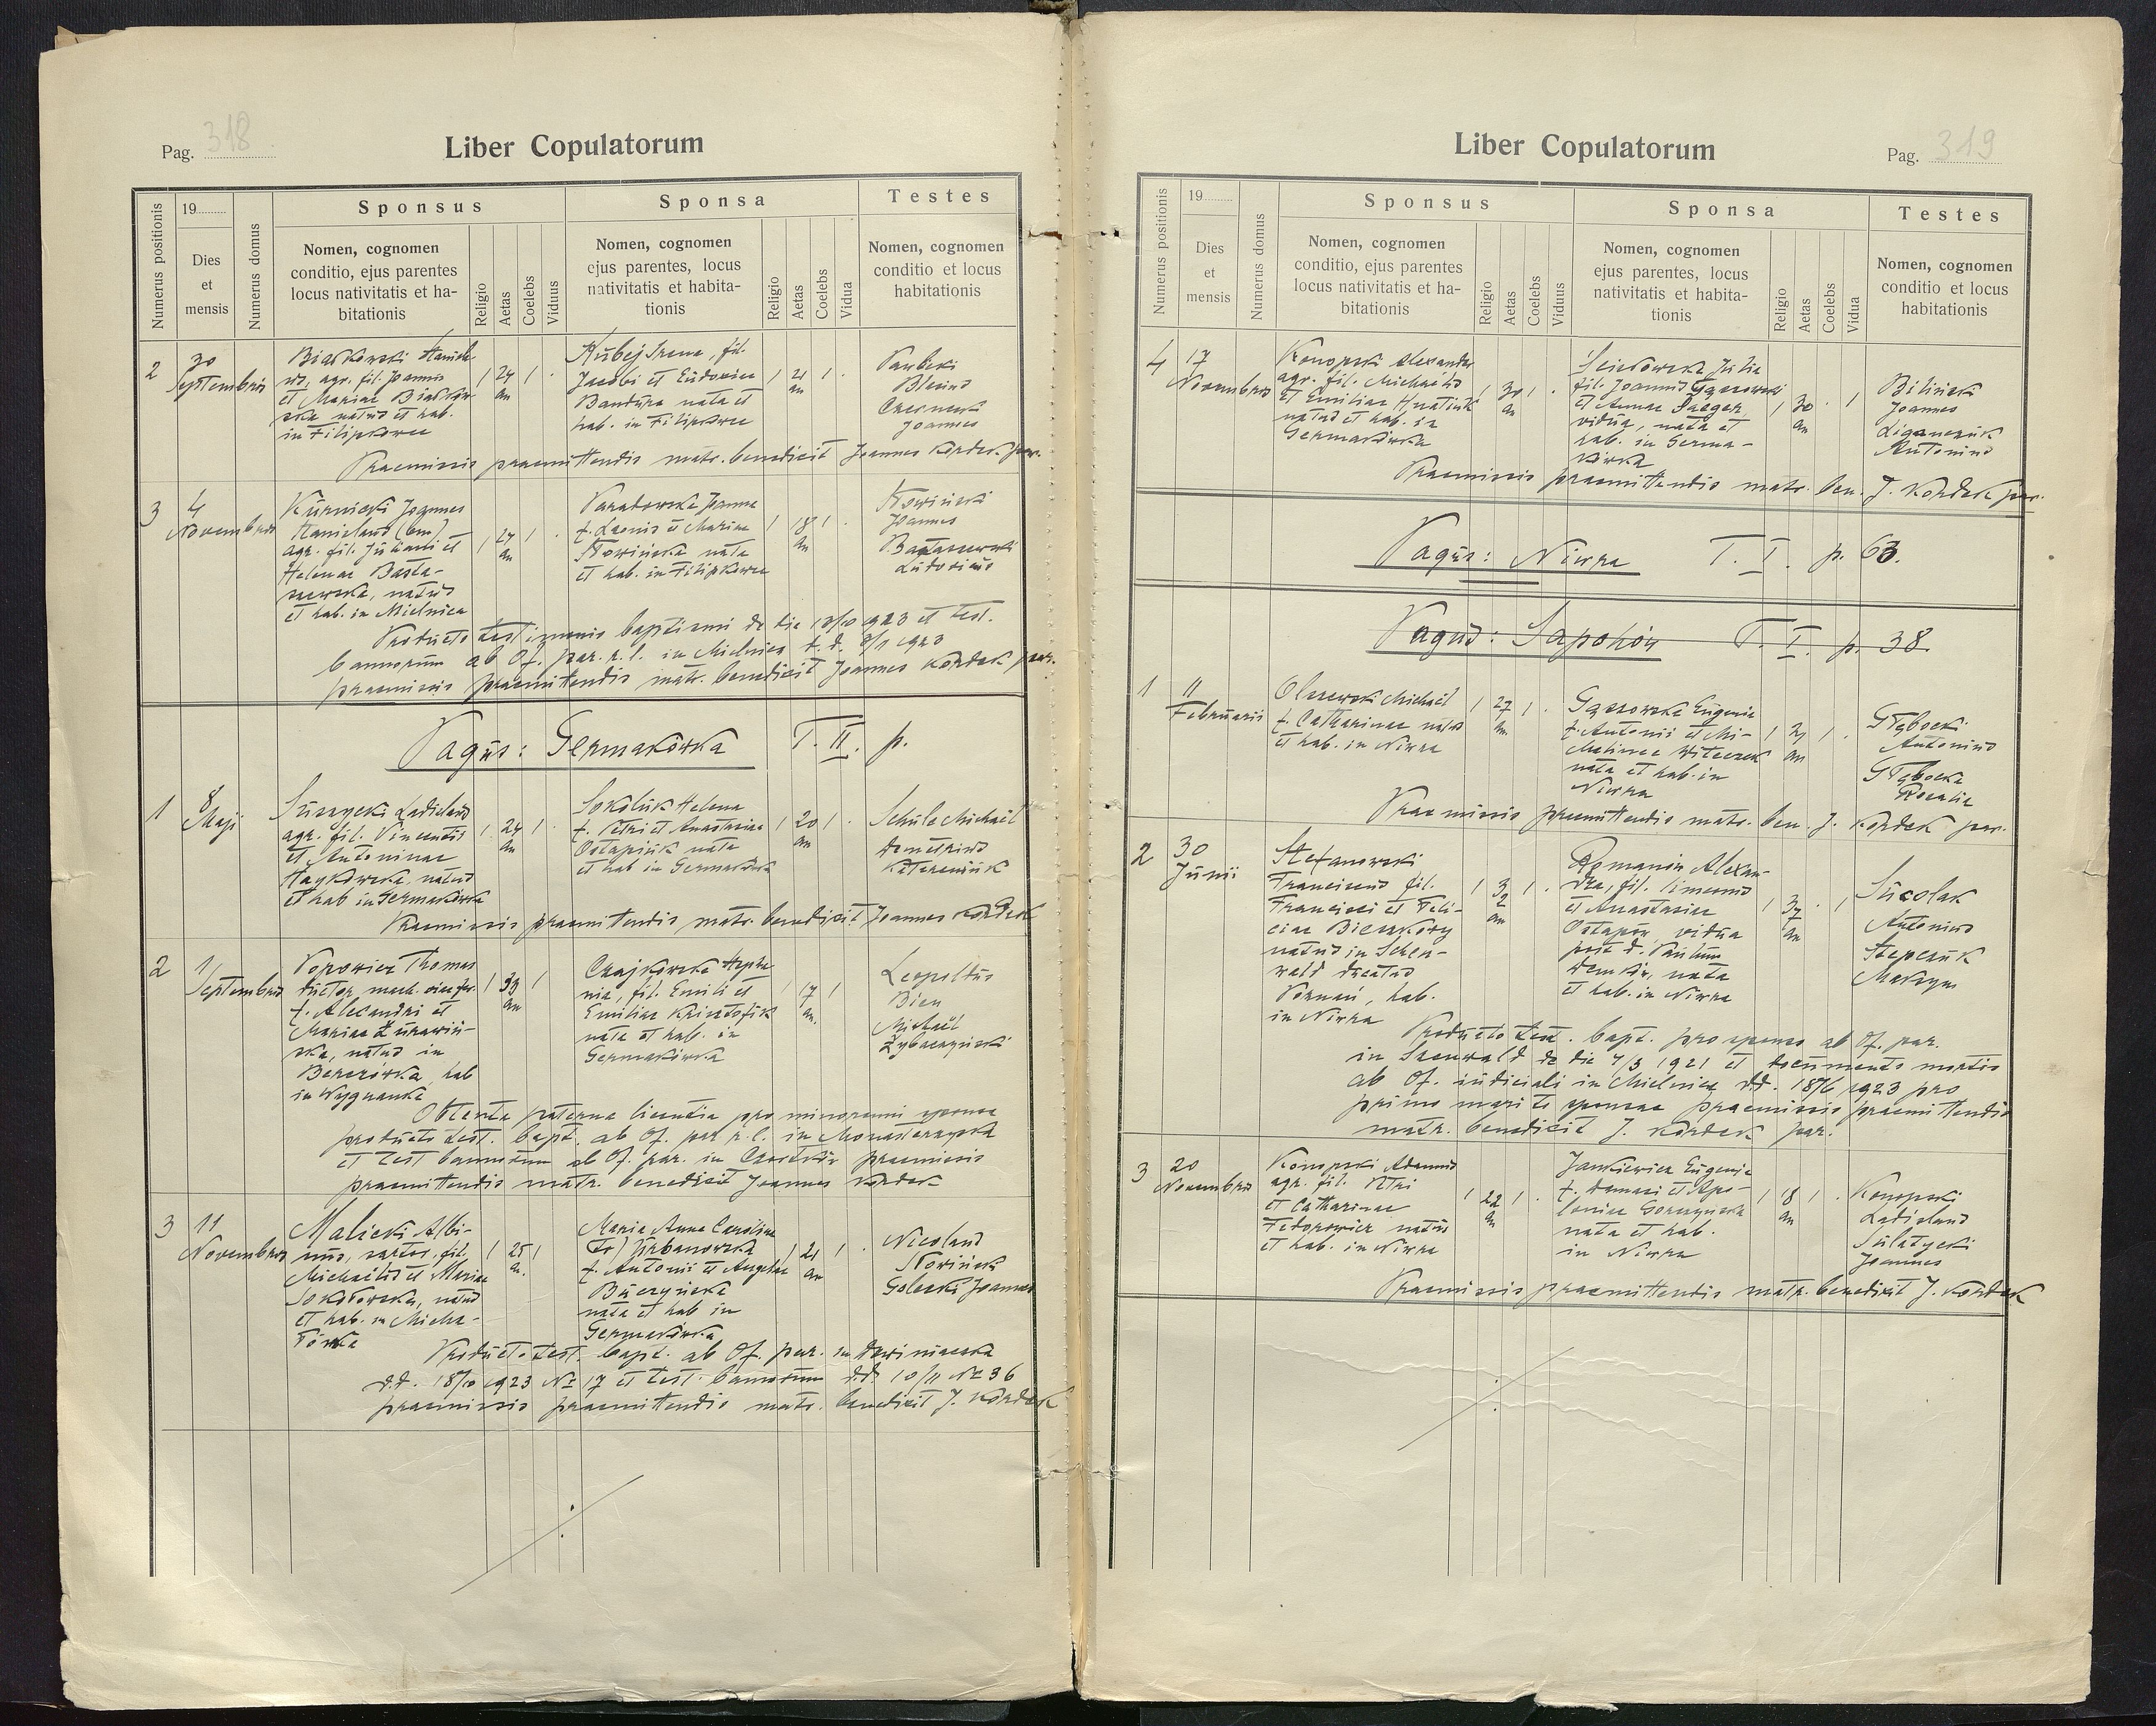 Pag. 318
Liber Copulatorum
Numerus positionis
19
Dies
et
mensis
Numerus domus
Sponsus
Nomen, cognomen
conditio, ejus parentes
locus nativitatis et ha-
bitationis
Religio
Aetas
Coelebs
Viduus
Sponsa
Nomen, cognomen
ejus parentes, locus
nativitatis et habita-
tionis
Religio
Aetas
Coelebs
Vidua
Testes
Nomen, cognomen
conditio et locus
habitationis
2
30
Septembris
Białkowski Stanisla-
us, agr. fil. Joannis
et Mariae Białkow-
ska natus et hab.
in Filipkowce
24
an
Kubej Irena, fil.
Jacobi et Eudoxiae
Bandura nata et
hab. in Filipkowce
21
an
Joannes
Praemissis praemittendis matr. benedixit Joannes Kordek par.
3
4
Novembris
Kurnicki Joannes
Stanislaus (bin)
agr. fil. Juliani et
Helenae Basta-
szewska, natus
et hab. in Mielnica
24
an
Joanna
f. Leonis et Mariae
Słowińska nata
et hab. in Filipkowce
18
an
Słowiński
Joannes
Bastaszewski
Ludovicus
Producto testimonio baptismi de die 13/10 1923 et test.
bannorum ab Of. par. r. l. in Mielnica d. d. 3/11 1923
praemissis praemittendis matr. benedixit Joannes Kordek par.
Pagus: Germakówka T. II. p.
1
8
Maji
Ladislaus
agr. fil. Vincentii
et Antoninae
natus
et hab in Germakówka
24
an
Sokoluk Helena
f. Petri et Anastasiae
Ostapiuk nata
et hab in Germakówka
20
an
Schulc Michaël
Praemissis praemittendis matr. benedixit Joannes Kordek
2
1
Septembris
Popowicz Thomas
ductor mach.
f. Alexandri et
Mariae Żurawiń-
ska, natus in
Berezówka, hab
in Wygnanka
33
an
Czajkowska Stepha-
nia, fil. Emilii et
Emiliae Krisztofik
nata et hab. in
Germakówka
17
an.
Leopoldus
Bien
Michaël
Obtenta paterna licentia pro minorenni sponsa
producto test. bapt. ab Of. par r. l. in Monasterzyska
et test bannorum ab Of. par. in Czortków praemissis
praemittendis matr. benedixit Joannes Kordek
3
11
Novembris
Malicki Albi-
nus, sartor, fil.
Michaëlis et Mariae
Sokołowska, natus
et hab. in Micha-
łówka
25
an.
Maria Anna Carolina
Urbanowska
f. Antonii et Angelae
Buczyńska
nata et hab in
Germakówka
21
an
Nicolaus
Słowiński
Golecki Joannes
Producto test. bapt. ab Of. par. in Dzwiniaczka
d.d. 18/10 1923 № 17 et test. bannorum d.d. 10/11 № 36
praemissis praemittendis matr. benedixit J. Kordek
Liber Copulatorum
Pag. 319
Numerus positionis
19
Dies
et
mensis
Numerus domus
Sponsus
Nomen, cognomen
conditio, ejus parentes
locus nativitatis et ha-
bitationis
Religio
Aetas
Coelebs
Viduus
Sponsa
Nomen, cognomen
ejus parentes, locus
nativitatis et habita-
tionis
Religio
Aetas
Coelebs
Vidua
Testes
Nomen, cognomen
conditio et locus
habitationis
4
17
Novembris
Konopski Alexander
agr. fil. Michaëlis
et Emiliae Hnatiuk
natus et hab. in
Germakówka
30
an
Julia
fil. Joannis Gąssowski
et Annae Saeger
vidua, nata et
hab. in Germa-
kówka
30
an
Biliński
Joannes
Antonius
Praemissis praemittendis matr. ben. J. Kordek par.
Pagus: Niwra T. I. p. 63.
Pagus: Sapohów T. I. p. 38.
1
11
Februarii
Olszewski Michaël
f. Catharinae natus
et hab. in Niwra
27
an
Gąssowska Eugenia
f. Antonii et Mi-
chalinae Witeczek
nata et hab. in
Niwra
21
an
Głębocki
Antonius
Głębocka
Rozalia
Praemissis praemittendis matr. ben. J. Kordek par.
2
30
Junii
Stefanowski
Franciscus fil.
Francisci et Feli-
ciae
natus in Schen-
wald ducatus
Poznań, hab.
in Niwra
32
an
Romanów Alexan-
dra, fil. Simeonis
et Anastasiae
Ostapów, vidua
post d. Paulum
nata
et hab. in Niwra
37
an
Antonius
Stepczuk
Maksym
Producto test. bapt. pro sponso ab Of. par.
in Szenwald de die 4/3 1921 et documento mortis
ab Of. iudiciali in Mielnica d.d. 18/6 1923 pro
primo marito sponsae praemissis praemittendis
matr. benedixit J. Kordek par.
3
20
Novembris
Konopski Adamus
agr. fil. Petri
et Catharinae
Fedorowicz natus
et hab. in Niwra
22
an
Jankiewicz Eugenia
f. Damasi et Apo-
loniae Gorczyńska
nata et hab.
in Niwra
18
an
Konopski
Ladislaus
Sulatycki
Joannes
Praemissis praemittendis matr. benedixit J. Kordek